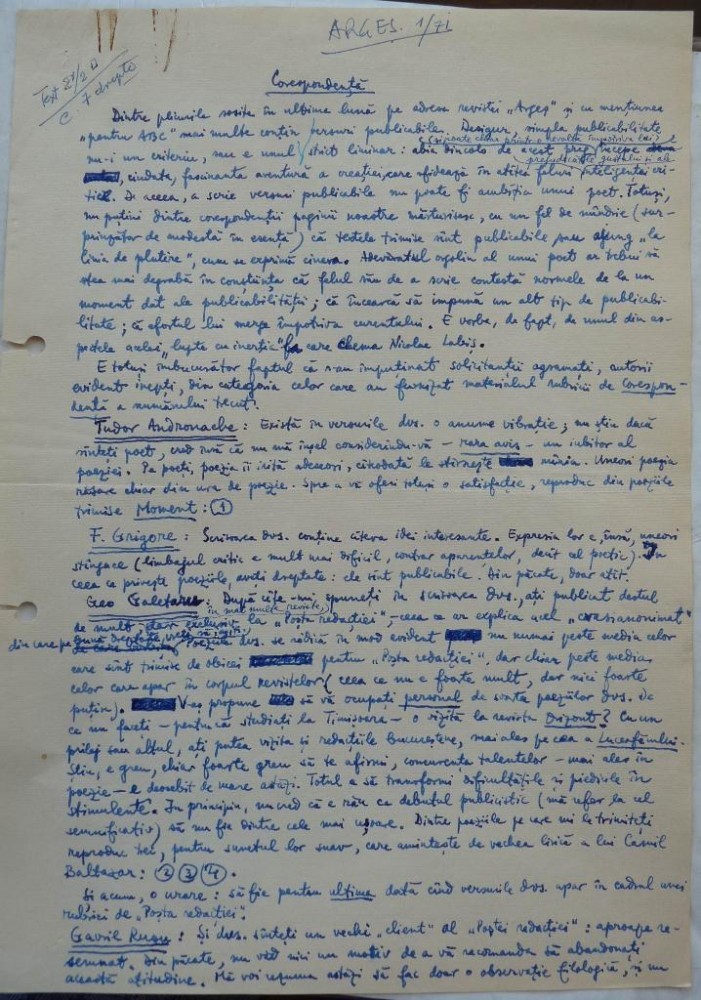 ARGEȘ. 1/71
Text
c. 7 drepte
Corespondență
Dintre plicurile sosite în ultima lună pe adresa revistei „Argeș" și cu mențiunea
„pentru ABC" mai multe conțin versuri publicabile. Desigur, simpla publicabilitate
nu-i un criteriu, sau e unul strict liminar: abia dincolo de acest prag începe
(și poate chiar împotriva lui)
prejudecățile gustului și ale
ciudata, fascinanta aventură a creației, care sfidează în atîtea feluri inteligenței cri-
tice. De aceea, a scrie versuri publicabile nu poate fi ambiția unui poet. Totuși,
nu puțini dintre corespondenții paginii noastre mărturisesc, cu un fel de mîndrie (sur-
prinzător de modestă în esență) că textele trimise sînt publicabile sau ajung „la
linia de plutire", cum se exprimă cineva. Adevăratul orgoliu al unui poet ar trebui să
stea mai degrabă în conștiința că felul său de a scrie contestă normele de la un
moment dat ale publicabilității; că încearcă să impună un alt tip de publicabi-
litate; că efortul lui merge împotriva curentului. E vorba, de fapt, de unul din as-
pectele acelei „lupte cu inerția" la care chema Nicolae Labiș.
E totuși îmbucurător faptul că s-au împuținat solicitanții agramați, autorii
evident inepți, din categoria celor care au furnizat materialul rubricii de Corespon-
dență a numărului trecut.
Tudor Andronache: Există în versurile dvs. o anume vibrație; nu știu dacă
sînteți poet, cred însă că nu mă înșel considerîndu-vă – rara avis – un iubitor al
poeziei. Pe poeți, poezia îi irită adeseori, cîteodată le stîrnește mînia. Uneori poezia
răsare chiar din ura de poezie. Spre a vă oferi totuși o satisfacție, reproduc din poeziile
trimise Moment: 1
F. Grigore: Scrisoarea dvs. conține cîteva idei interesante. Expresia lor e, însă, uneori
stîngace (limbajul critic e mult mai dificil, contrar aparențelor, decît cel poetic). În
ceea ce privește poeziile, aveți dreptate: ele sînt publicabile. Din păcate, doar atît.
Geo Galetaru: După cîte-mi spuneți în scrisoarea dvs., ați publicat destul
în mai multe reviste,
de mult, dar exclusiv la „Poșta redacției", – ceea ce ar explica acel „cvasianonimat"
din care pe bună dreptate, vreți să ieșiți. Poeziile dvs. se ridică în mod evident nu numai peste media celor
care sînt trimise de obicei pentru „Poșta redacției", dar chiar peste media
celor care apar în corpul revistelor (ceea ce nu e foarte mult, dar nici foarte
puțin). V-aș propune să vă ocupați personal de soarta poeziilor dvs. De
ce nu faceți – pentru că studiați la Timișoara – o vizită la revista Orizont? Cu un
prilej sau altul, ați putea vizita și redacțiile bucureștene, mai ales pe cea a Luceafărului.
Știu, e greu, chiar foarte greu să te afirmi, concurența talentelor – mai ales în
poezie – e deosebit de mare astăzi. Totul e să transformi dificultățile și piedicile în
stimulente. În principiu, nu cred că e rău ca debutul publicistic (mă refer la cel
semnificativ) să nu fie dintre cele mai ușoare. Dintre poeziile pe care mi le trimiteți
reproduc trei, pentru sunetul lor suav, care amintește de vechea lirică a lui Camil
Baltazar: 2 3 4.
Și acum, o urare: să fie pentru ultima dată cînd versurile dvs. apar în cadrul unei
rubrici de „Poșta redacției".
Gavril Rugu: Și dvs. sînteți un vechi „client" al „Poștei redacției": aproape re-
semnat. Din păcate, nu văd nici un motiv de a vă recomanda să abandonați
această atitudine. Mă voi rezuma astăzi să fac doar o observație filologică, și nu